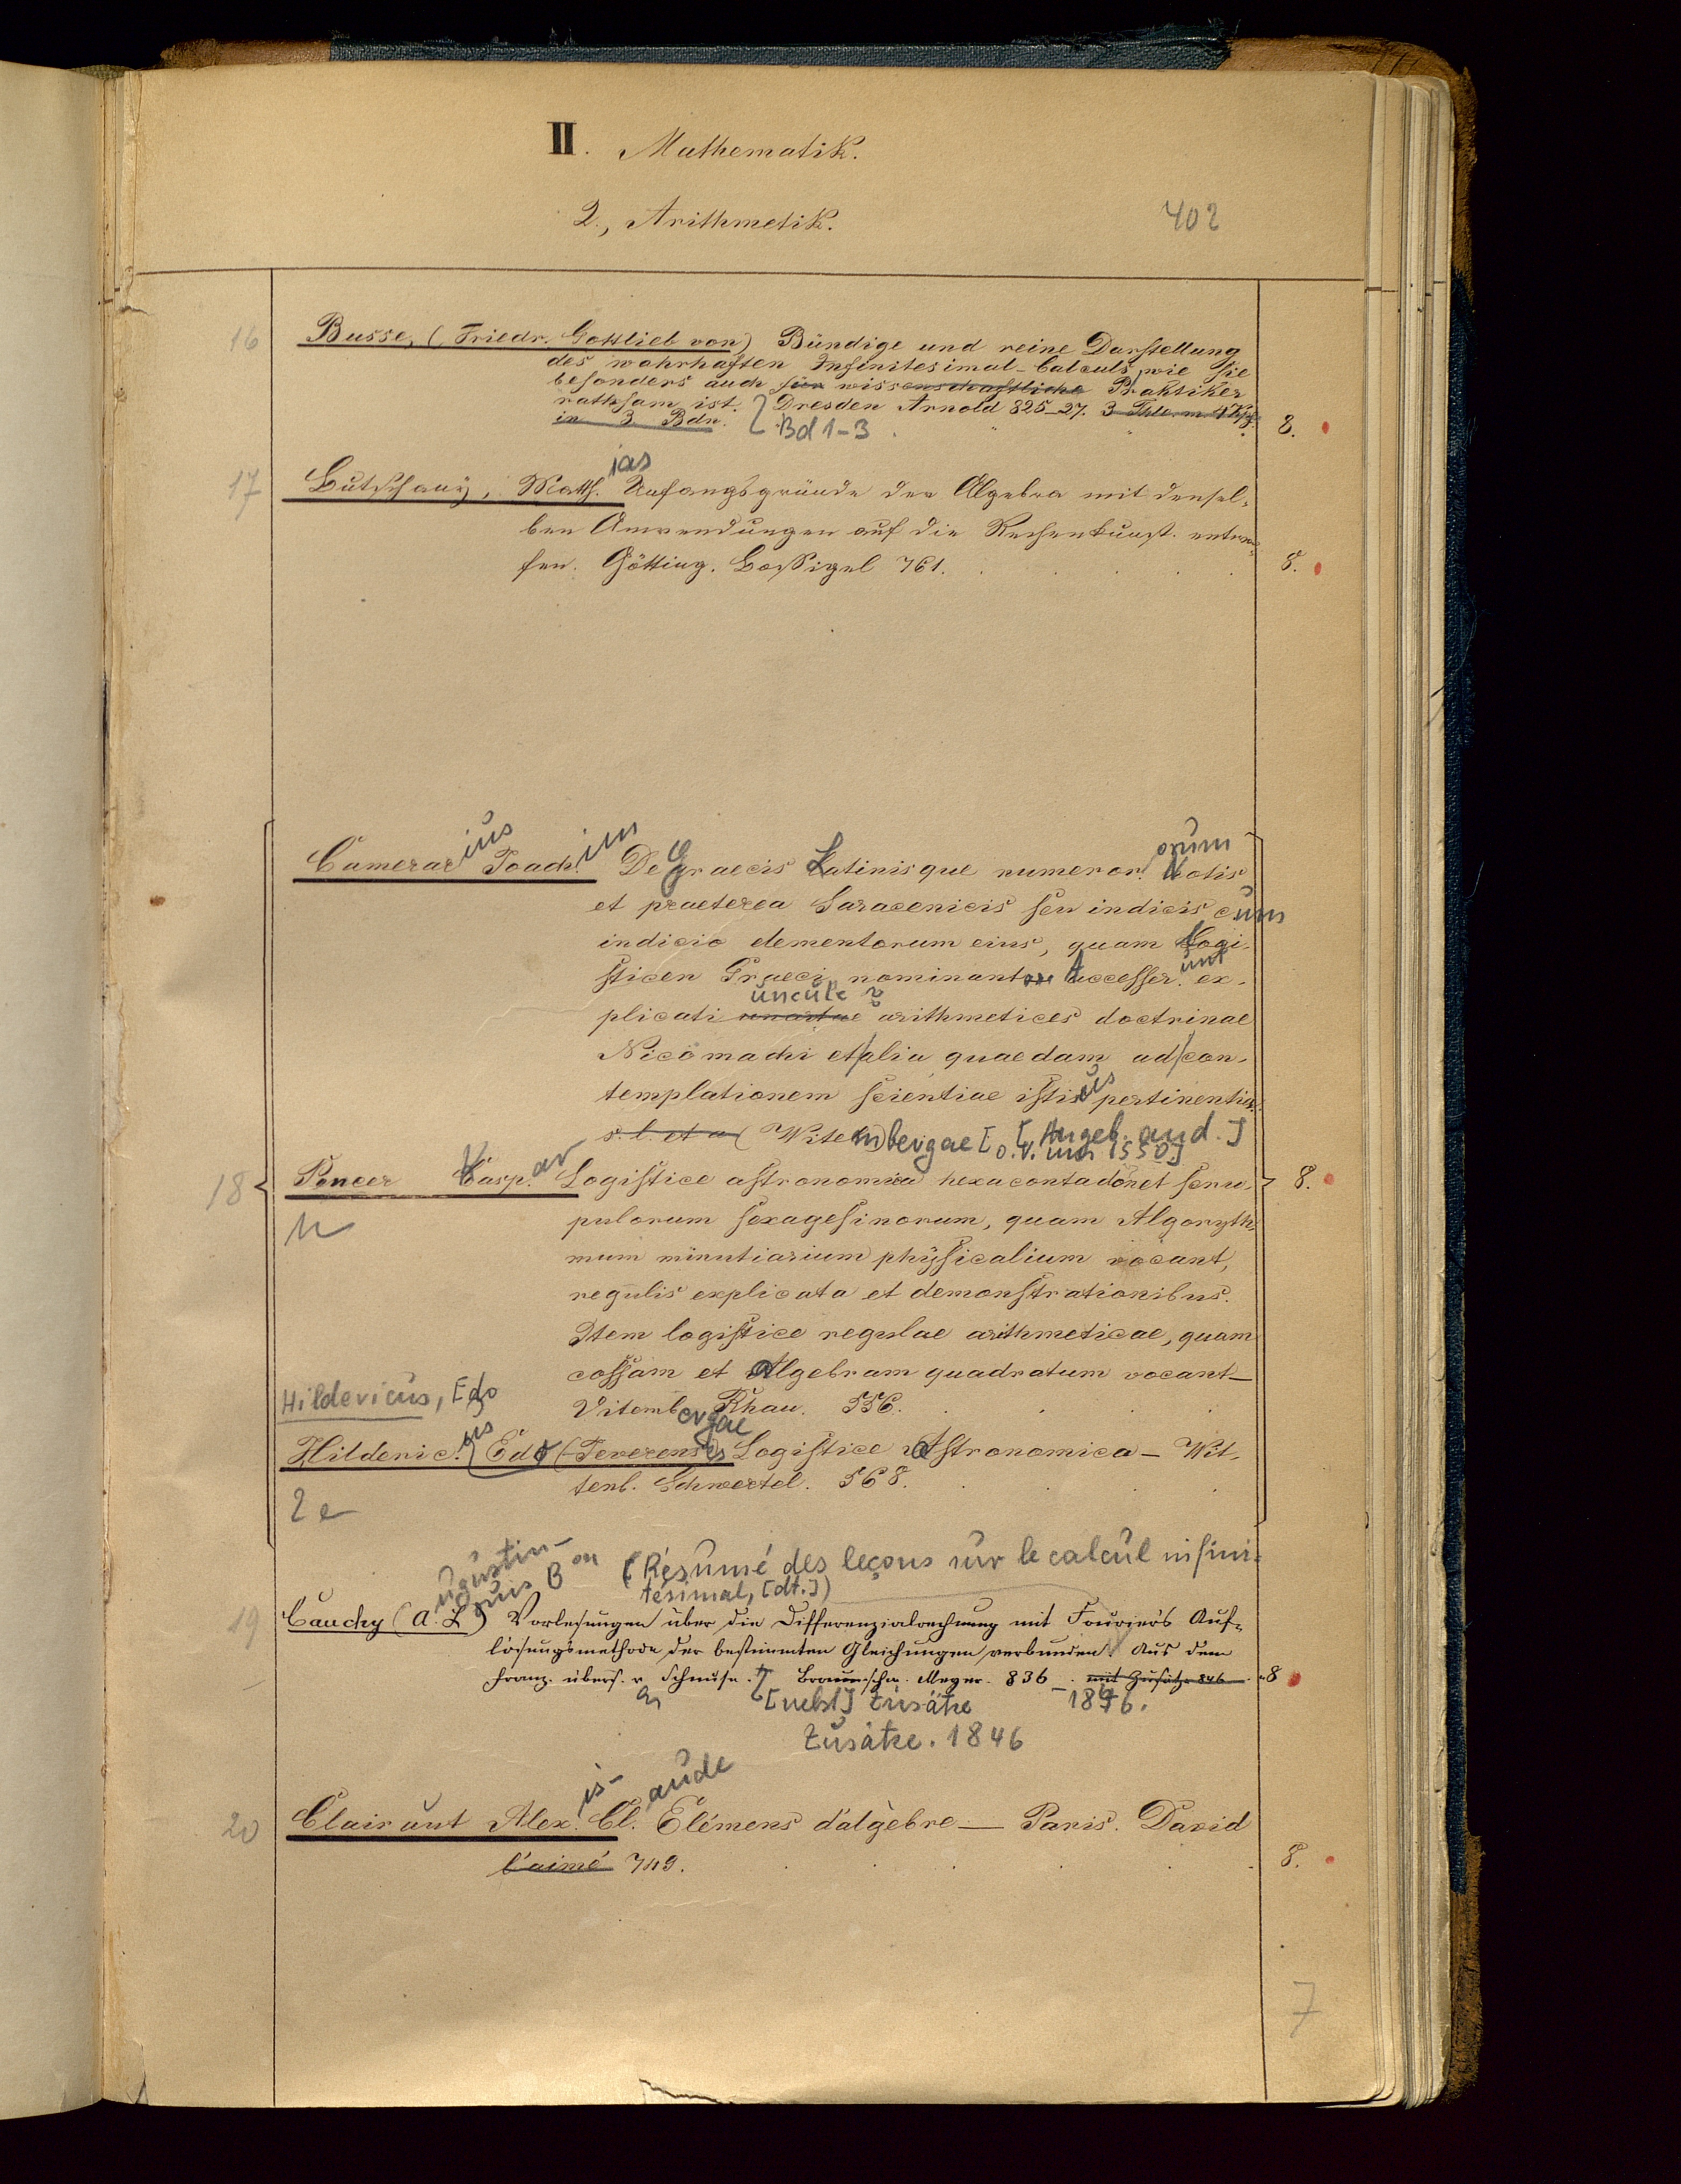 II. Mathematik.
2., Arithmetik. 402
16 Busse, (Friedr. Gottlieb von) Bündige und reine Darstellung
des wahrhaften Infinitesimal-Calculs, wie sie
besonders auch für wissenschaftliche Praktiker
rathsam ist. Dresden Arnold 825-27. 3 Thle. m. 4 Kpf.
in 3 Bdn. Bd 1-3 8.
17 Butschany, Matth.ias Anfangsgründe der Algebra mit densel-
ben Anwendungen auf die Rechenkunst. entwor-
fen. Götting. Bossigel 761. 8.
Camerarius Joach.im De Graecis Latinisque numeror.orum Notis
et praeterea Saracenicis seu indicis cum
indicio elementorum eius, quam Logi-
sticen Graeci nominant Accesser.unt ex-
plicati unculae arithmetices doctrinae
Nicomachi et alia quaedam ad con-
templationem scientiae istius pertinentia.
s. l. et a (Witenbergae [o. V. um 1550] [Angeb. and.]
18 Peucer Caspar Logistice astronomica hexacontadon et scru- 8.
pulorum sexagesinorum, quam Algoryth-
mum minutiarium physicalium vocant,
regulis explicata et demonstrationibus.
Item logistice regulae arithmeticae, quam
cossam et Algebram quadratum vocant-
Vitembergae Rhau. 556.
Hildericus, Edo
Hilderic.us Edo (Jeverensis) Logistice Astronomica - Wit-
tenb. Schwertel. 568.
2 e
(Résumé des leçons sur le calcul infini-
tésimal, [dt.])
19 Cauchy (A.ugustin-L.ouis Bon) Vorlesungen über die Differenzialrechnung mit Fourier's Auf-
lösungsmethode der bestimmten Gleichungen verbunden. Aus dem
Franz. übers. v. Schnuse. Braunschw. Meyer. 836 . mit Zusätze 846 8
[nebst] Zusätze - 1846.
Zusätze. 1846
20 Clairaut Alex.is-Cl.aude Elémens d'algèbre — Paris. David
l'aimé 749. 8.
7